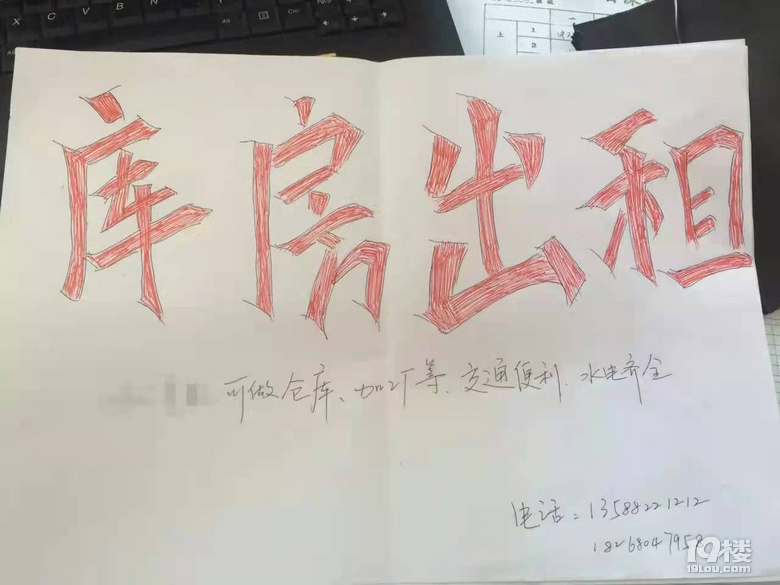 库房出租
可做仓库、加工等、交通便利、水电齐全
电话：13588221212
18268047958
19楼
19lou.com
X C V B N M
上 1
2